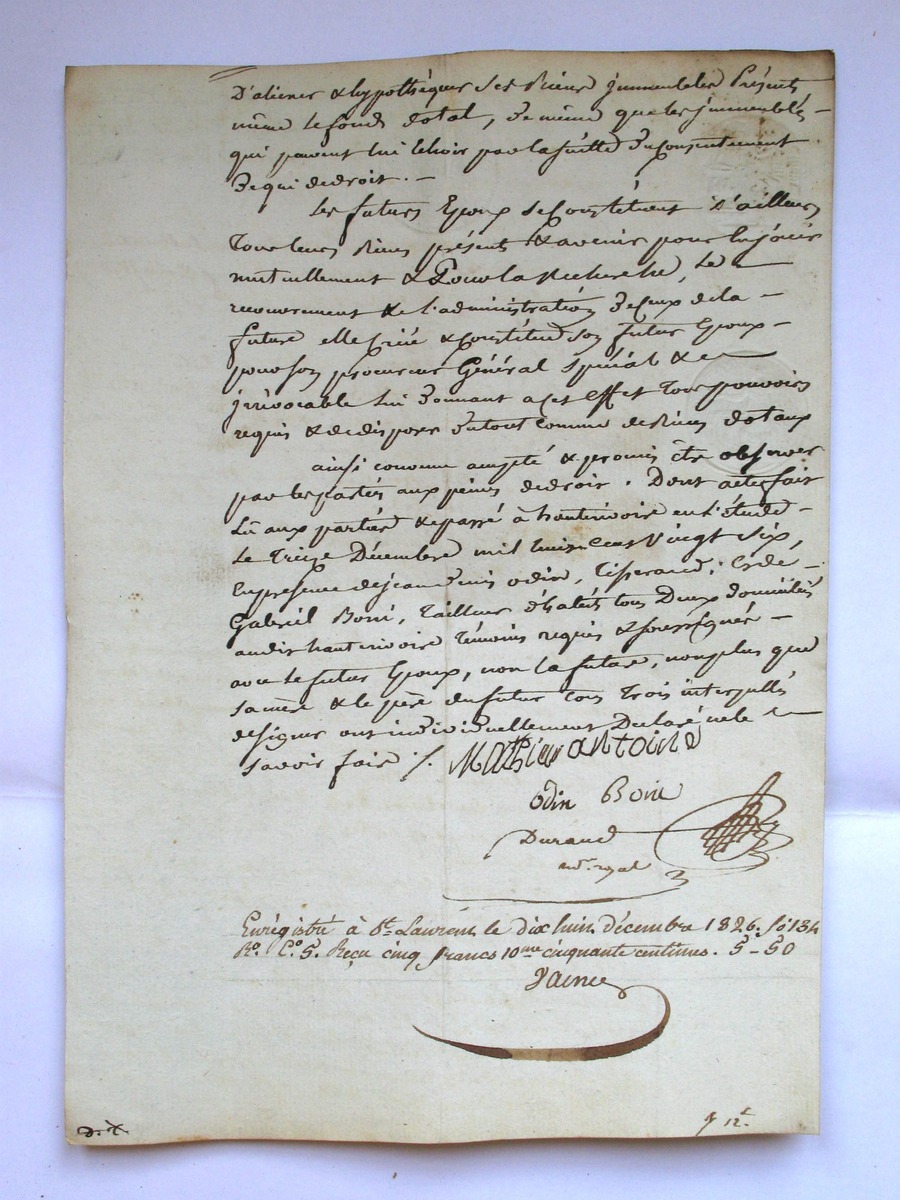 D'aliener & hypothéquer ses Biens immeubles Présents
même le fond dotal, de même que les immeubles
qui peuvent lui échoir par la suitte du consentement
de qui de droit. —
Les futurs Epoux se constituent d'ailleurs
Tous leurs Biens présents & avenir pour en jouir
mutuellement & Pour la Recherche, Le
recouvrement & l'administration de ceux de la —
future elle crée & constitue son futur Epoux —
pour son procureur Général spécial & —
irrévocable lui donnant a cet effet Tous pouvoirs
requis & de disposer du tout comme de Biens dotaux
ainsi convenu accepté & promis être observer
par les parties aux peines de droit. Dont acte fait
Lu aux parties & passé à hauterivoire en l'étude —
Le Treize Décembre mil huit Cent Vingt Six,
En présence de jean denis odin, Tisserand, & de —
Gabriel Boni, Tailleur d'habits tous Deux domiciliés
audit hauterivoire Témoins requis & soussignés —
avec le futur Epoux, non la future, non plus que
sa mère & le père du futur tous Trois interpellés
de signer ont individuellement Déclaré ne le
savoir faire /. Mathieu antoine
odin Boni
Durand
not. royal
Enrégistré à St. Laurent le dix huit décembre 1826. fo 134
Ro. Co. 5. Reçu cinq francs 10me cinquante centimes. 5-50
12